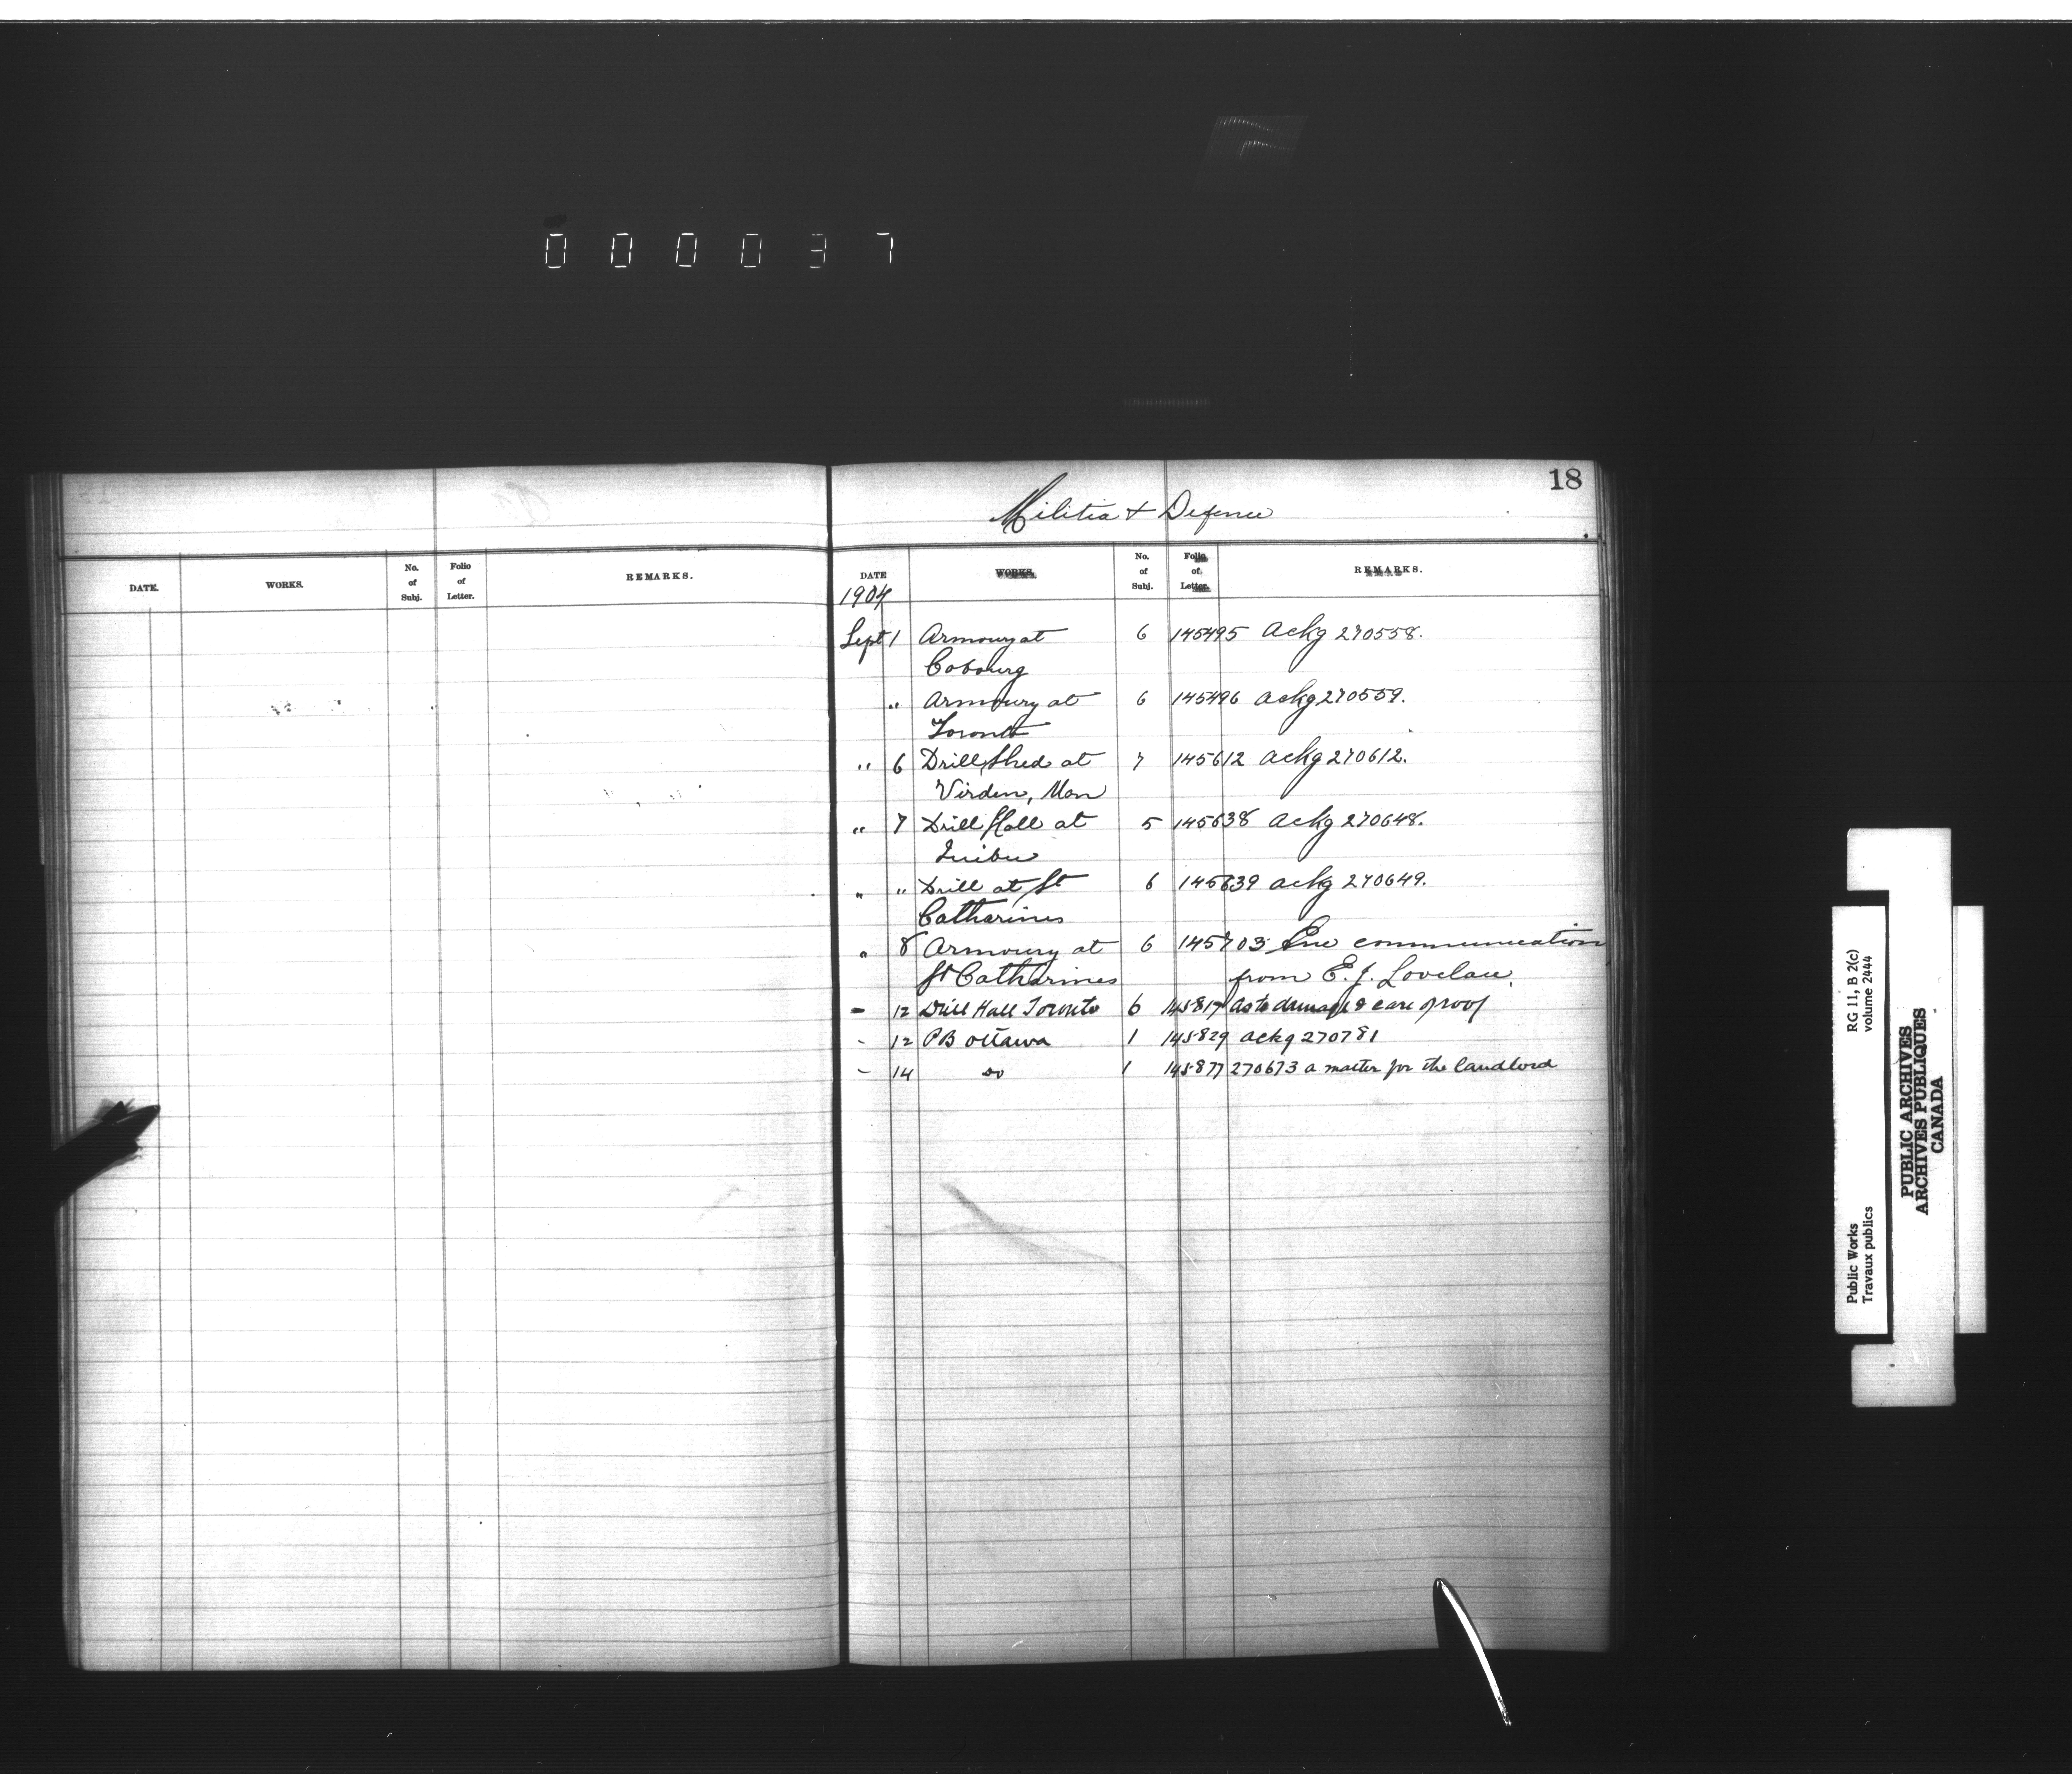 000037
18
Militia & Defence
DATE. WORKS. No. of Subj. Folio of Letter. REMARKS.
DATE WORKS. No. of Subj. Folio of Letter. REMARKS.
1904
Sept 1 Armoury at 6 145495 ackg 270558.
Cobourg
" Armoury at 6 145496 ackg 270559.
Toronto
" 6 Drill Shed at 7 145612 ackg 270612.
Virden, Man
" 7 Drill Hall at 5 145638 ackg 270648.
" " Drill at St 6 145639 ackg 270649.
Catharines
" 8 Armoury at 6 145703 Enc communication
St Catharines from E. J. Lovelace.
- 12 Drill Hall Toronto 6 145817 as to damage & care of roof
- 12 PB Ottawa 1 145829 ackg 270781
- 14 Do 1 145877 270673 a matter for the landlord
Public Works RG 11, B 2(c)
Travaux publics volume 2444
PUBLIC ARCHIVES
ARCHIVES PUBLIQUES
CANADA